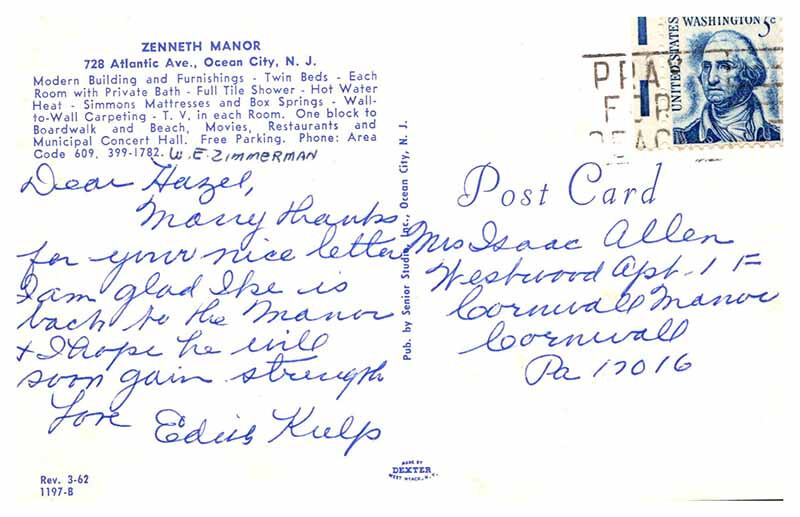 ZENNETH MANOR
728 Atlantic Ave., Ocean City, N. J.
Modern Building and Furnishings - Twin Beds - Each
Room with Private Bath - Full Tile Shower - Hot Water
Heat - Simmons Mattresses and Box Springs - Wall-
to-Wall Carpeting - T. V. in each Room. One block to
Boardwalk and Beach, Movies, Restaurants and
Municipal Concert Hall. Free Parking. Phone: Area
Code 609. 399-1782. W. E. ZIMMERMAN
Dear Hazel,
Many thanks
for your nice letter
I am glad Ike is
back to the Manor
& I hope he will
soon gain strength
Love
Edith Kulp
Rev. 3-62
1197-B
Pub. by Senior Studio, Inc., Ocean City, N. J.
MADE BY
DEXTER
WEST NYACK, N.Y.
UNITED STATES
WASHINGTON 5c
PRA
FOR
PEAC
Post Card
Mrs Isaac Allen
Westwood Apt. 1 F
Cornwall Manor
Cornwall
Pa 17016